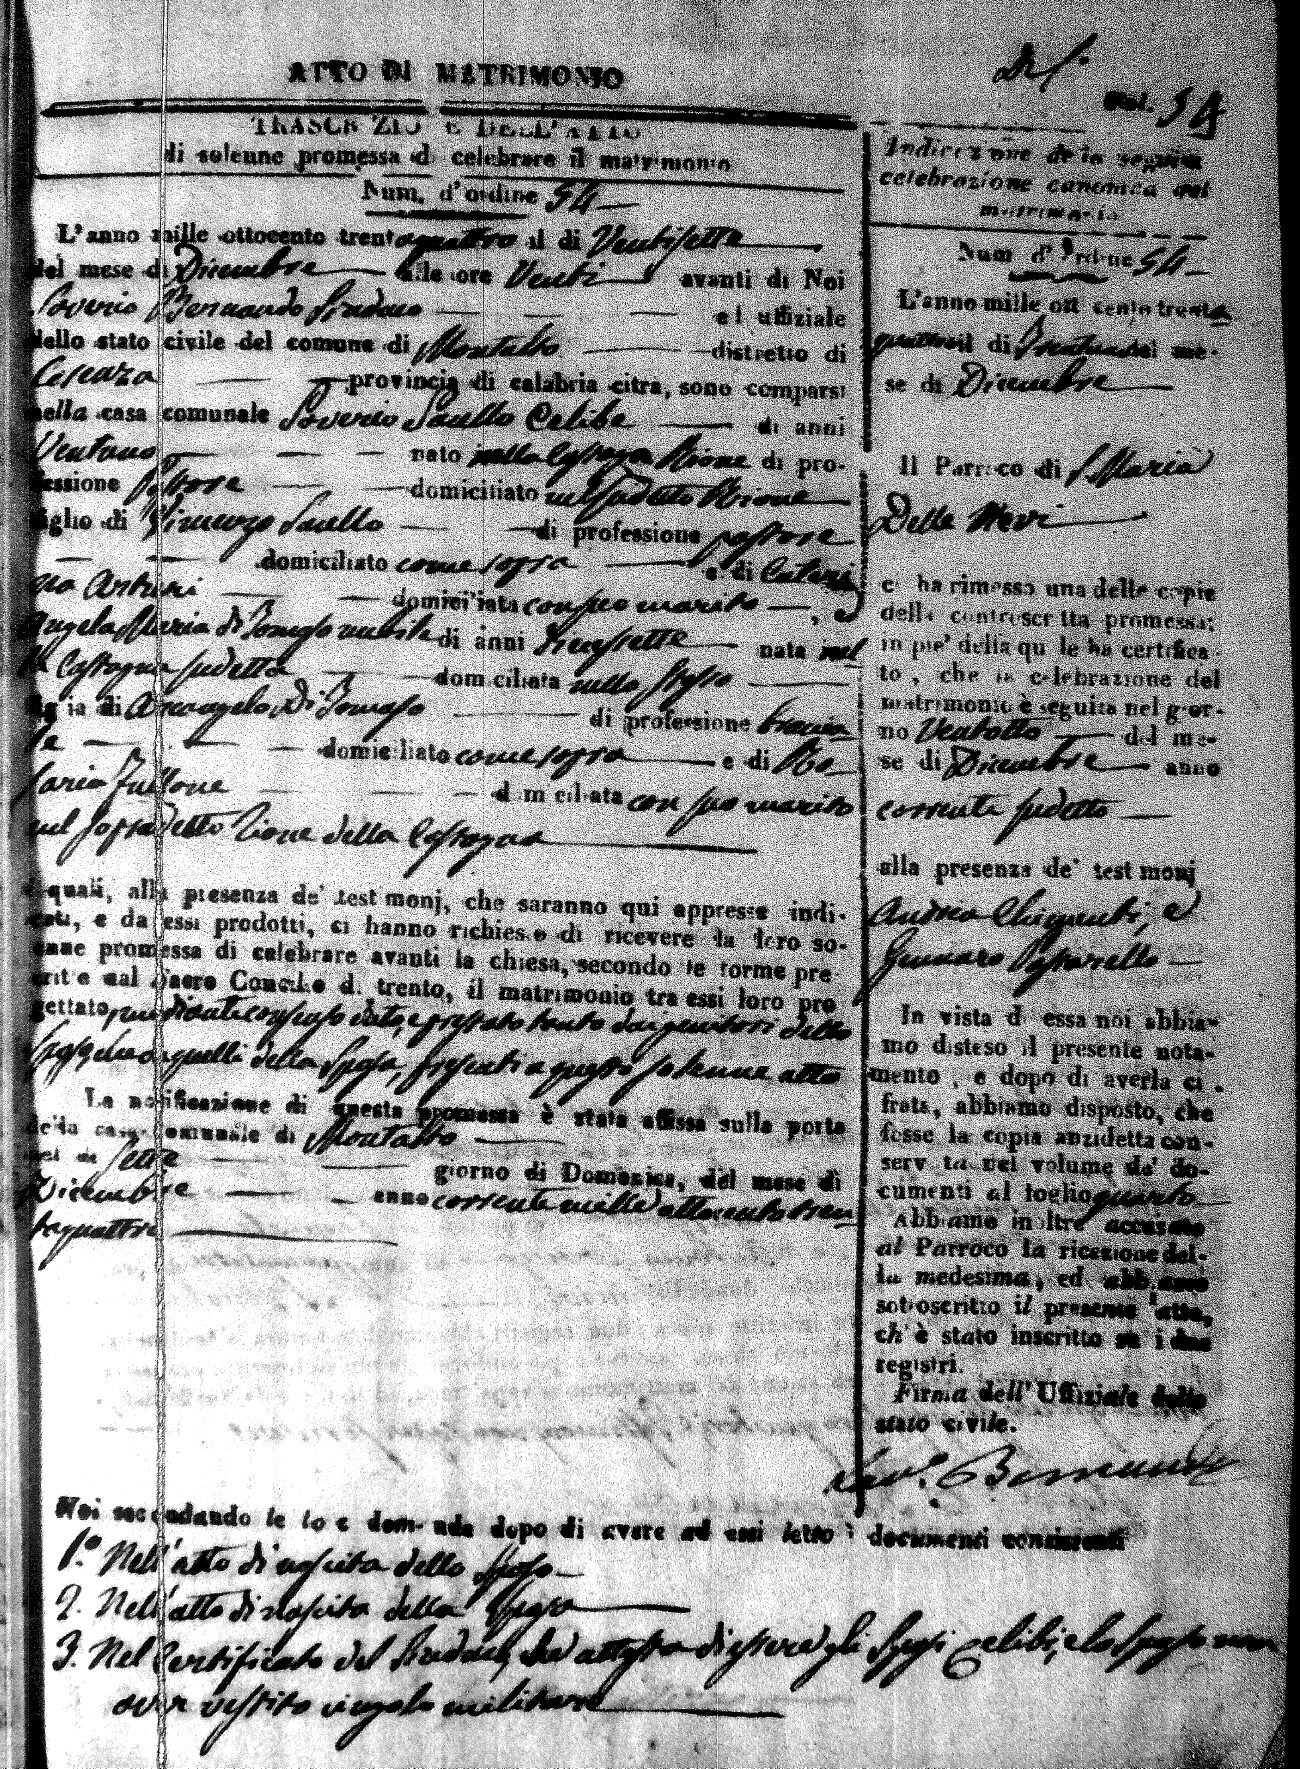 ATTO DI MATRIMONIO
Fol. 54
TRASCRIZIONE DELL'ATTO
di solenne promessa di celebrare il matrimonio
Num. d'ordine 54
L'anno mille ottocento trentaquattro il di Ventisette
del mese di Dicembre alle ore Venti avanti di Noi
Saverio Bernardo Sindaco ed uffiziale
dello stato civile del comune di Montalto distretto di
Cosenza provincia di calabria citra, sono comparsi
nella casa comunale Saverio Saullo Celibe di anni
Ventuno nato nella Castagna Rione di pro-
fessione Pastore domiciliato nel sudetto Rione
figlio di Vincenzo Saullo di professione pastore
domiciliato come sopra e di Cateri
na Arturi domiciliata con suo marito,
Angela Maria di Tomaso nubile di anni diecessette nata nel
la Castagna sudetta domiciliata nello stesso
figlia di Arcangelo Di Tomaso di professione braccia
le domiciliato come sopra e di Ro-
saria Zullone domiciliata con suo marito
nel sopradetto Rione della Castagna
I quali, alla presenza de' testimonj, che saranno qui appresso indi-
cati, e da essi prodotti, ci hanno richiesto di ricevere la loro so-
lenne promessa di celebrare avanti la chiesa, secondo le forme pre
scritte dal Sacro Concilio di trento, il matrimonio tra essi loro pro
gettato, mediante consenso dato, e prestato tanto dai genitori dello
sposo che da quelli della sposa, presenti a questo solenne atto
La notificazione di questa promessa è stata affissa sulla porta
della casa comunale di Montalto
nel di sette giorno di Domenica, del mese di
Dicembre anno corrente mille ottocento tren
taquattro
Indicazione della seguita
celebrazione canonica del
matrimonio
Num d'Ordine 54
L'anno mille ottocento trenta
quattro il di Trentuno del me-
se di Dicembre
Il Parroco di S. Maria
Della Nevi
ci ha rimesso una delle copie
della controscritta promessa;
in pie' della quale ha certifica-
to, che la celebrazione del
matrimonio è seguita nel gior-
no Ventotto del me-
se di Dicembre anno
corrente sudetto
alla presenza de' testimonj
Andrea Chiappetti, e
Gennaro Pastorello
In vista di essa noi abbia-
mo disteso il presente nota-
mento, e dopo di averla ci-
frata, abbiamo disposto, che
fosse la copia anzidetta con-
servata nel volume de' do-
cumenti al foglio quarto
Abbiamo inoltre accusato
al Parroco la ricezione del-
la medesima, ed abbiamo
sottoscritto il presente atto,
ch'è stato inscritto su i due
registri.
Firma dell'Uffiziale dello
stato civile.
Sav. Bernardo
Noi secondando le loro domande dopo di avere ad essi letto i documenti consistenti
1.° Nell'atto di nascita dello sposo
2. Nell'atto di nascita della sposa
3. Nel Certificato del Sindaco, che attesta di essere gli sposi celibi, e lo sposo non
aver vestito uniforme militare